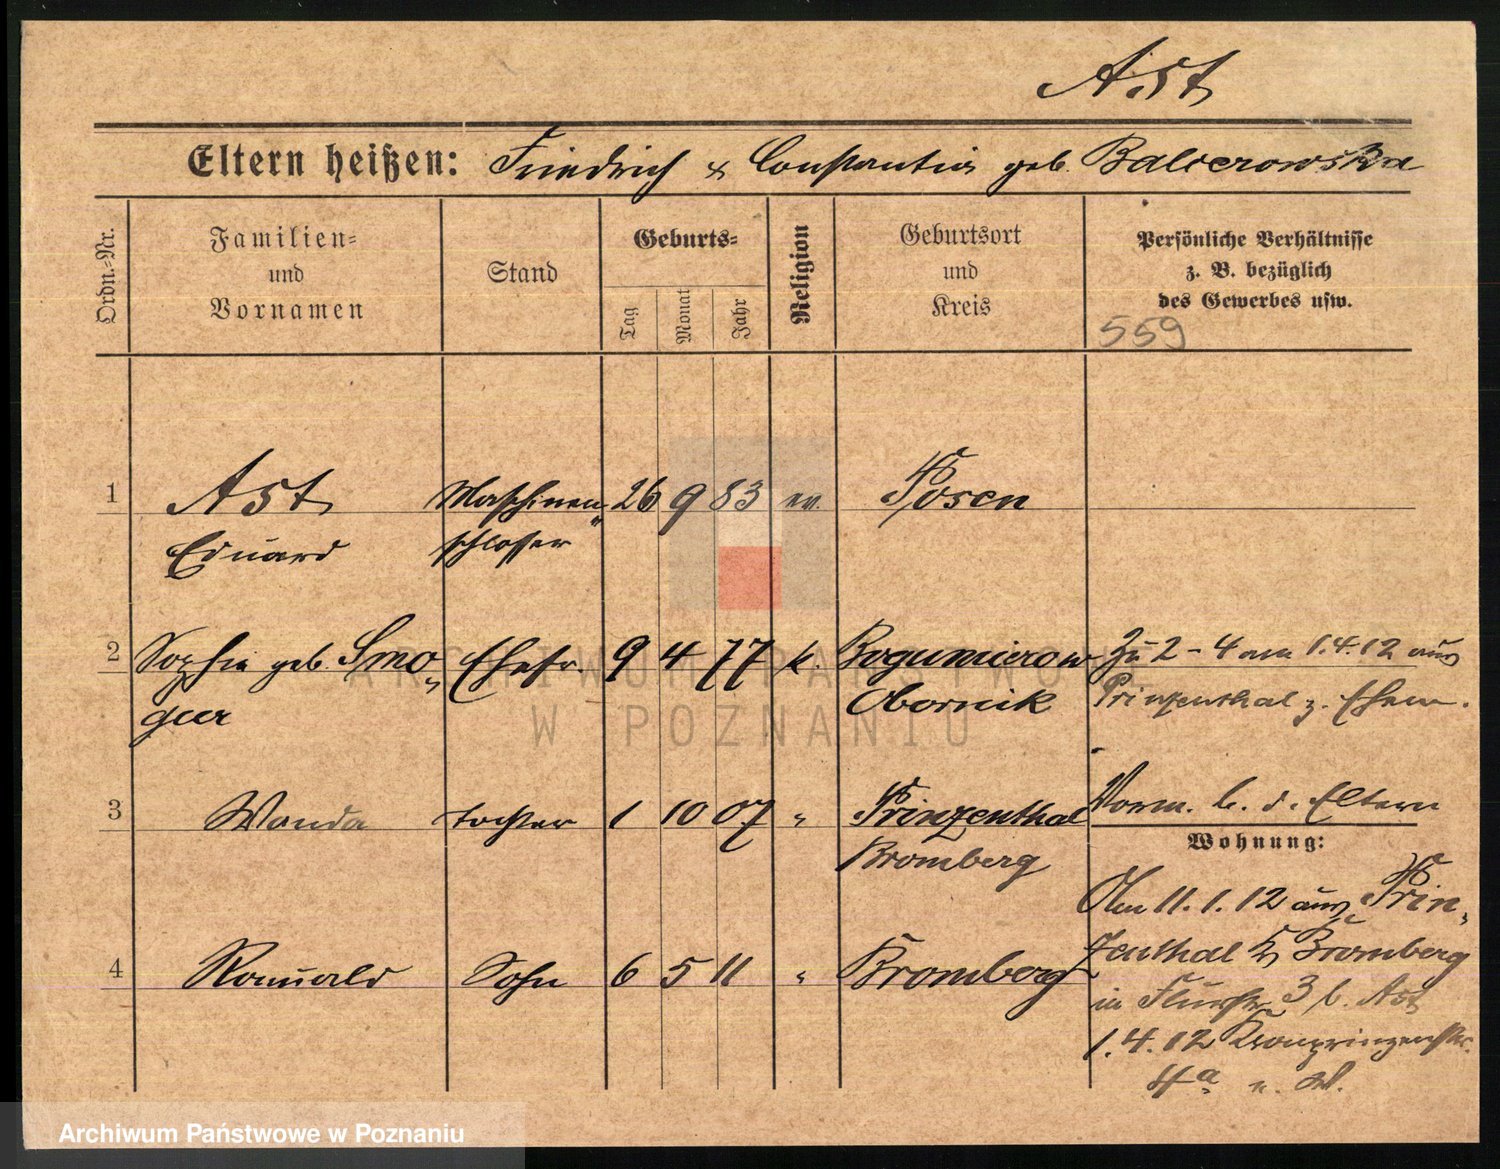 Ast
Eltern heißen: Friedrich & Constantia geb. Balcerowska
Ordn.-Nr.
Familien-
und
Vornamen
Stand
Geburts-
Tag
Monat
Jahr
Religion
Geburtsort
und
Kreis
Persönliche Verhältnisse
z. B. bezüglich
des Gewerbes usw.
559
1 Ast Maschinen 26 9 83 ev. Posen
Eduard schlosser
2 Sophie geb. Smo Ehefr. 9 4 77 k. Bogumierow Zu 2-4 am 1.4.12 aus
guer Obornik Prinzenthal z. Ehem.
3 Wanda Tochter 1 10 07 " Prinzenthal Vorm. b. d. Eltern
Bromberg
Wohnung:
Am 11.1.12 aus Prin-
4 Romuald Sohn 6 5 11 " Bromberg zenthal Bromberg
in Flurstr 3 b. Ast
1.4.12 Kronprinzenstr.
4a
ARCHIWUM PAŃSTWOWE
W POZNANIU
Archiwum Państwowe w Poznaniu